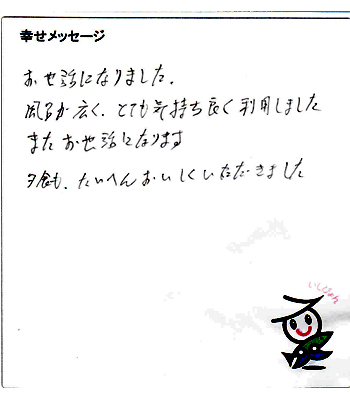 幸せメッセージ
お世話になりました。
風呂が広く、とても気持ち良く利用しました
またお世話になります
夕食も、たいへんおいしくいただきました
いしぴょん